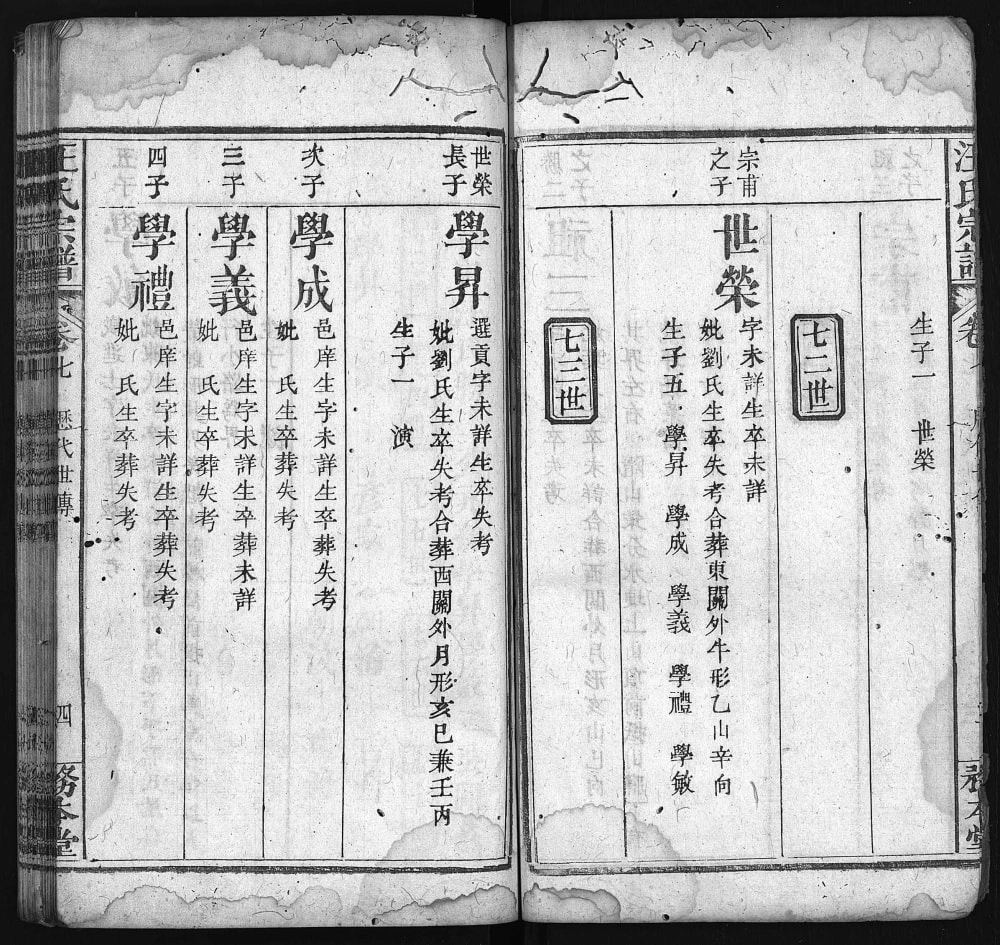 汪氏宗譜
生子一　世榮
七二世
宗甫之子
世榮
字未詳生卒未詳
妣劉氏生卒失考合葬東關外牛形乙山辛向
生子五　學昇　學成　學義　學禮　學敏
七三世
世榮長子
學昇
選貢字未詳生卒失考
妣劉氏生卒失考合葬西關外月形亥巳兼壬丙
生子一　演
次子
學成
邑庠生字未詳生卒葬失考
妣　氏生卒葬失考
三子
學義
邑庠生字未詳生卒葬未詳
妣　氏生卒葬失考
四子
學禮
邑庠生字未詳生卒葬失考
妣　氏生卒葬失考
汪氏宗譜
卷七　歷代世傳
四
務本堂